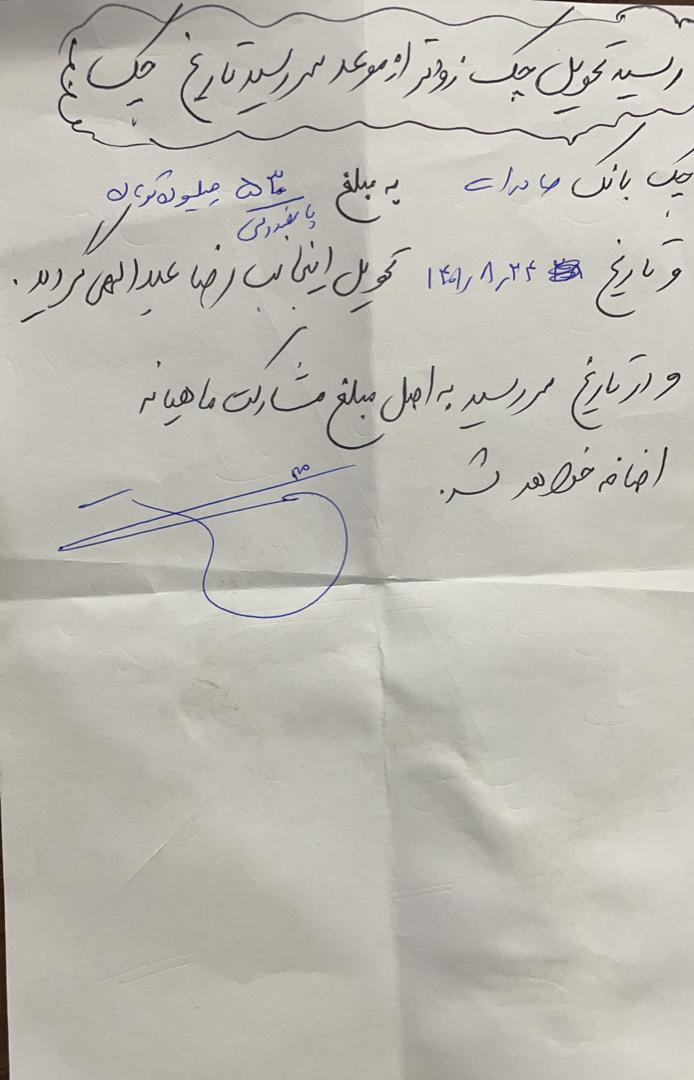 رسید تحویل چک زودتر از موعد سررسید تاریخ چک
چک بانک صادرات به مبلغ ۵۳۰ میلیون تومان
پانصد و سی
و تاریخ ۱۴۰۱٫۸٫۲۴ تحویل اینجانب رضا عبدالهی گردید.
و در تاریخ سررسید به اصل مبلغ مشارکت ماهیانه
اضافه خواهد شد.